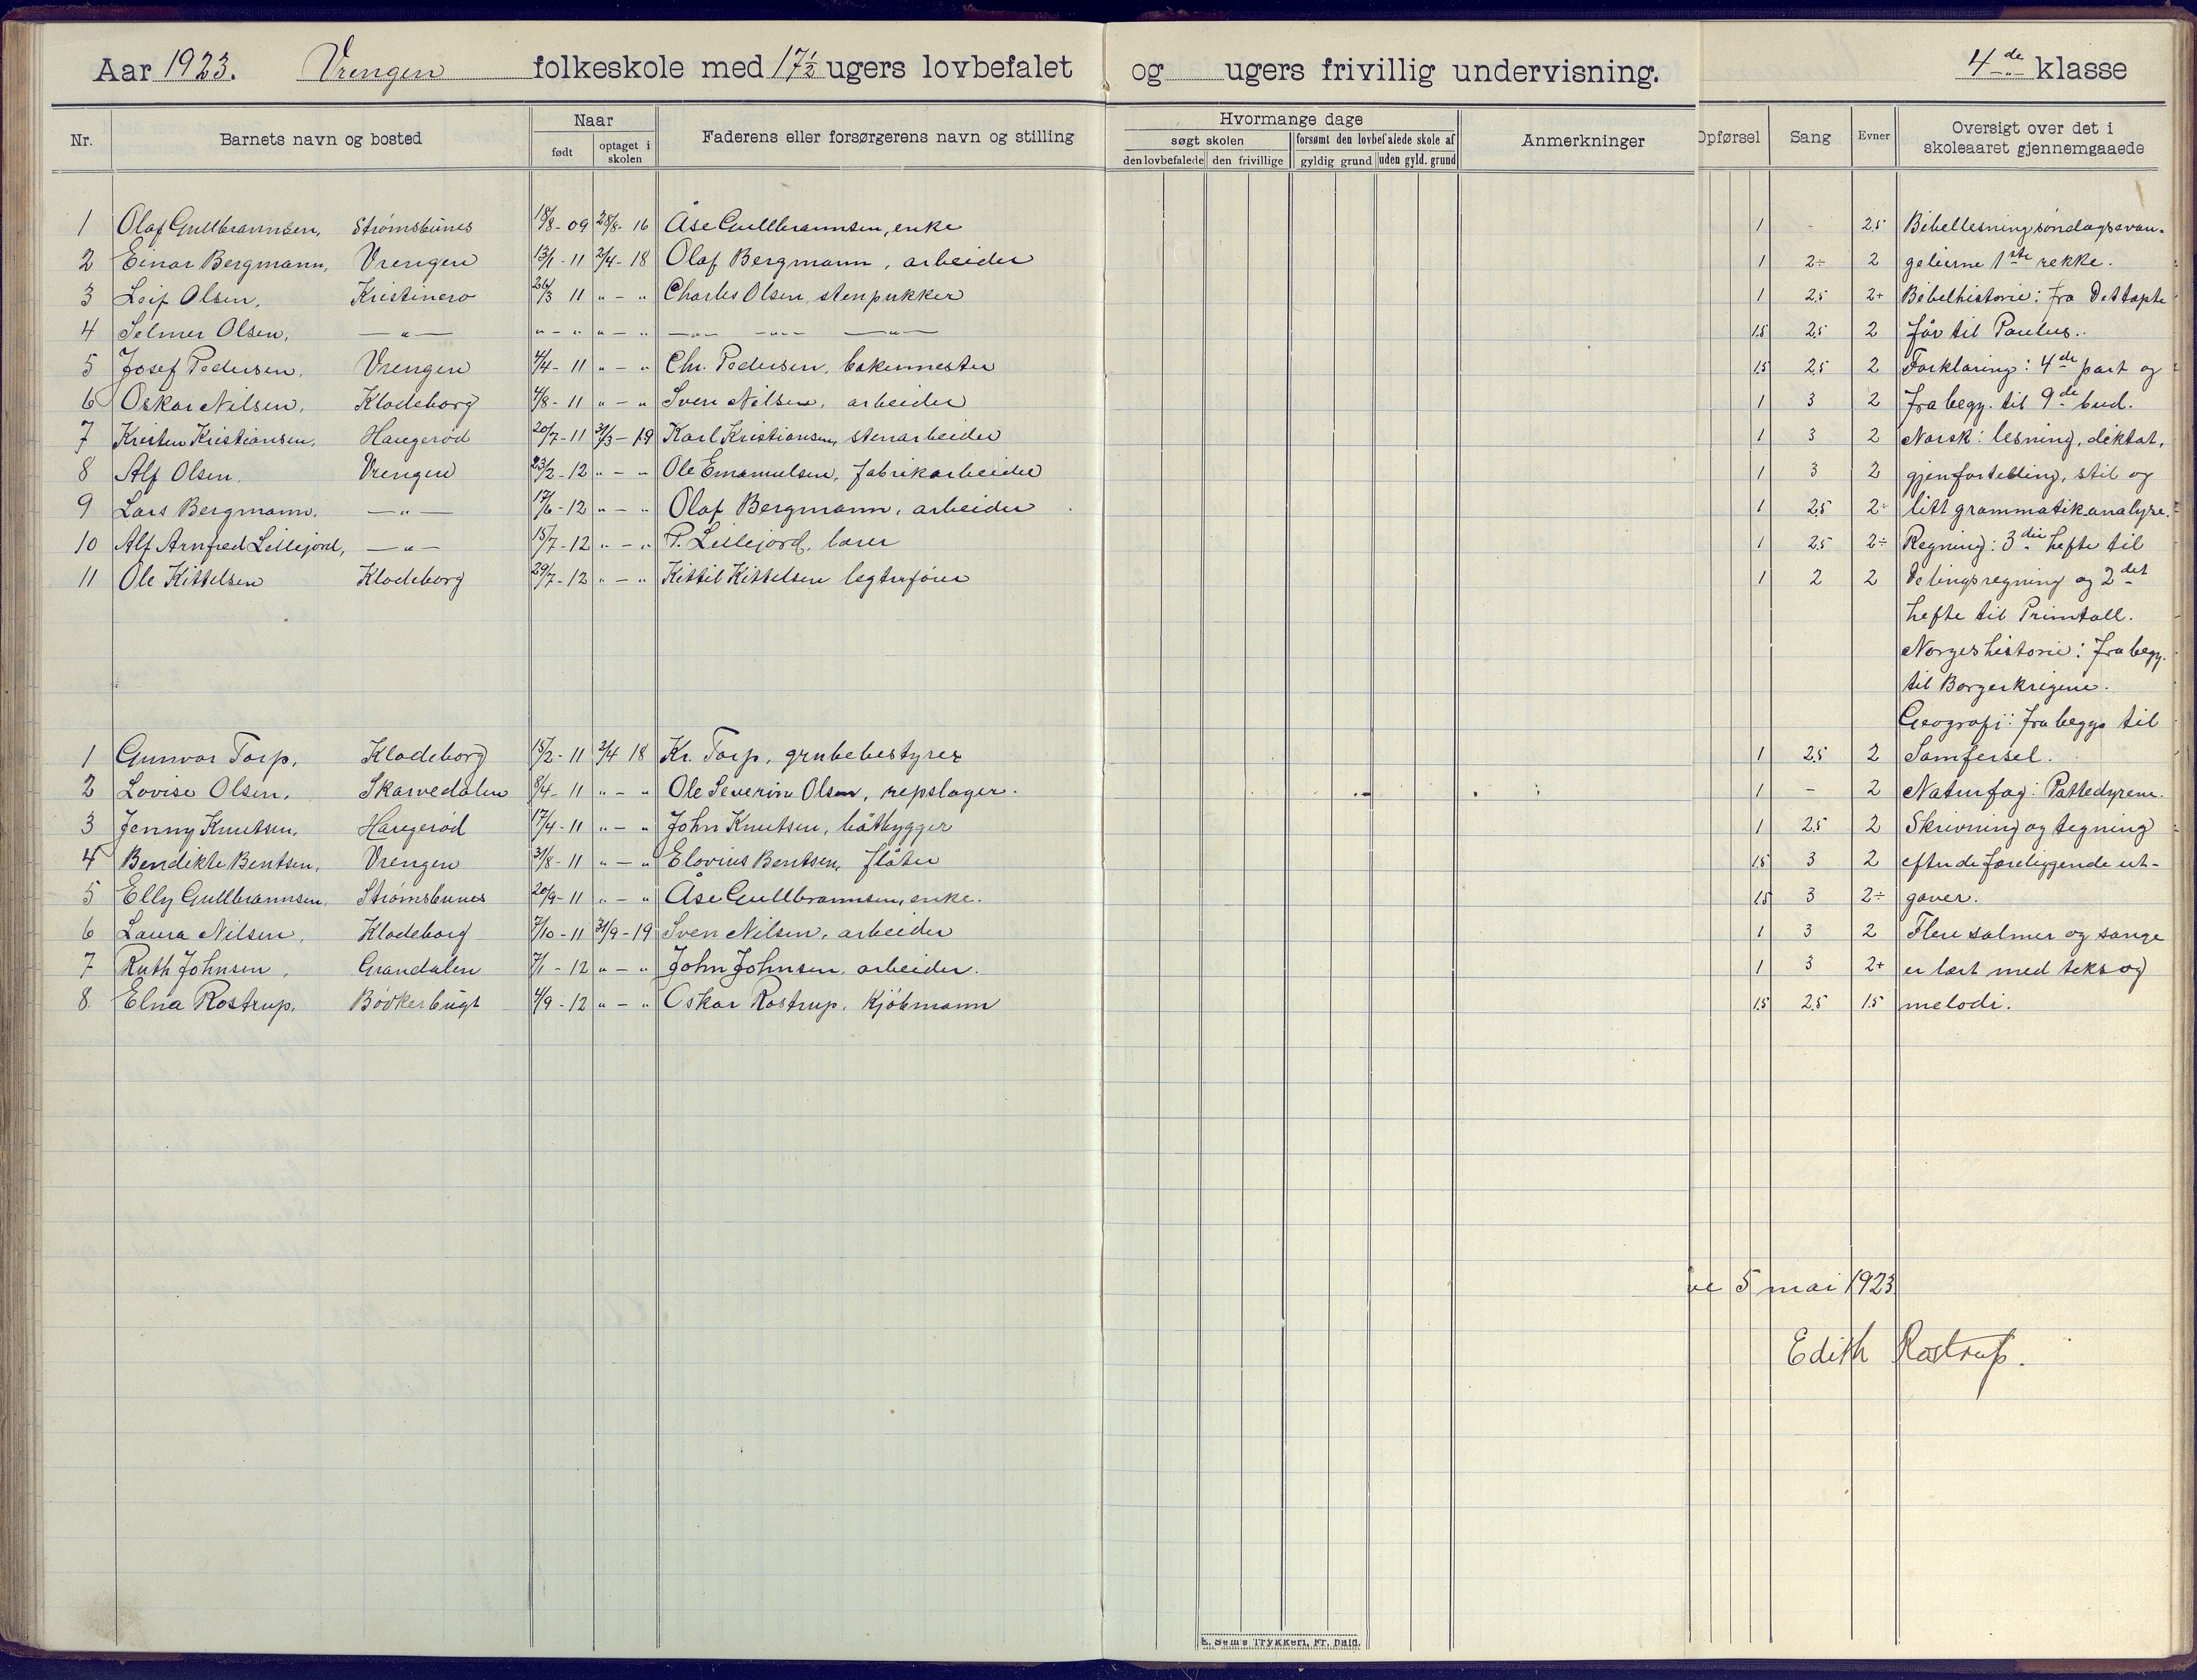 Aar 1923. Vrengen folkeskole med 17½ ugers lovbefalet og ugers frivillig undervisning. 4de klasse
Nr. Barnets navn og bosted Naar Faderens eller forsørgerens navn og stilling Hvormange dage Anmerkninger Opførsel Sang Evner Oversigt over det i skoleaaret gjennemgaaede
født optaget i skolen søgt skolen forsømt den lovbefalede skole af
den lovbefalede den frivillige gyldig grund uden gyld. grund
1 Olaf Gullbrannsen, Strømsbunes 18/8-09 28/8-16 Åse Gullbrannsen, enke 1 - 2,5 Bibellesning søndagsevan-
2 Einar Bergmann, Vrengen 13/1-11 2/4-18 Olaf Bergmann, arbeider 1 2÷ 2 gelierne 1ste rekke.
3 Leif Olsen, Kristinero 26/3 11 " - " Charles Olsen, stenpukker 1 2,5 2+ Bibelhistorie: fra Det tapte
4 Selmer Olsen, —"— " - " " - " —"— —"— —"— 1,5 2,5 2 får til Paulus.
5 Josef Pedersen, Vrengen 4/4-11 " - " Chr. Pedersen, bakermester 1,5 2,5 2 Forklaring: 4de part og
6 Oskar Nilsen, Klodeborg 4/8-11 " - " Sven Nilsen, arbeider 1 3 2 fra begy. til 9de bud.
7 Kristen Kristiansen, Haugerød 20/7-11 31/3-19 Karl Kristiansen, stenarbeider 1 3 2 Norsk: lesning, diktat,
8 Alf Olsen, Vrengen 23/2-12 " - " Ole Emanuelsen, fabrikarbeider 1 3 2 gjenfortelling, stil og
9 Lars Bergmann, —"— 17/6-12 " - " Olaf Bergmann, arbeider 1 2,5 2÷ litt grammatik analyse.
10 Alf Arnfred Lillejord, —"— 15/7-12 " - " P. Lillejord, lærer 1 2,5 2÷ Regning: 3die hefte til
11 Ole Kittelsen Klodeborg 29/7-12 " - " Kittil Kittelsen legterfører 1 2 2 Delingsregning og 2det
hefte til Primtall.
Norgeshistorie: fra begy.
til Borgerkrigene.
Geografi: fra begyn til
1 Gunvor Torp, Klodeborg 15/2-11 2/4 18 Kr. Torp, grubebestyrer 1 2,5 2 Samfersel.
2 Lovise Olsen, Skarvedalen 8/4-11 " - " Ole Severin Olsen, repslager. 1 - 2 Naturfag: Pattedyrene.
3 Jenny Knutsen, Haugerød 17/4-11 " - " John Knutsen, båtbygger 1 2,5 2 Skrivning og tegning
4 Bendikte Bentsen, Vrengen 31/8-11 " - " Elovius Bentsen, fløter 1,5 3 2 efter de foreliggende ut-
5 Elly Gullbrannsen, Strømsbunes 20/9-11 " - " Åse Gullbrannsen, enke. 1,5 3 2÷ gaver.
6 Laura Nilsen, Klodeborg 7/10-11 31/9-19 Sven Nilsen, arbeider 1 3 2 Flere salmer og sange
7 Ruth Johnsen, Grandalen 7/1-12 " - " John Johnsen, arbeider. 1 3 2+ er lært med tekst og
8 Elna Rostrup, Bøvkerbugt 4/9-12 " - " Oskar Rostrup, Kjöbmann 1,5 2,5 1,5 melodi.
5 mai 1923
Edith Rostrup.
E. Sem's Trykkeri, Fr.hald.